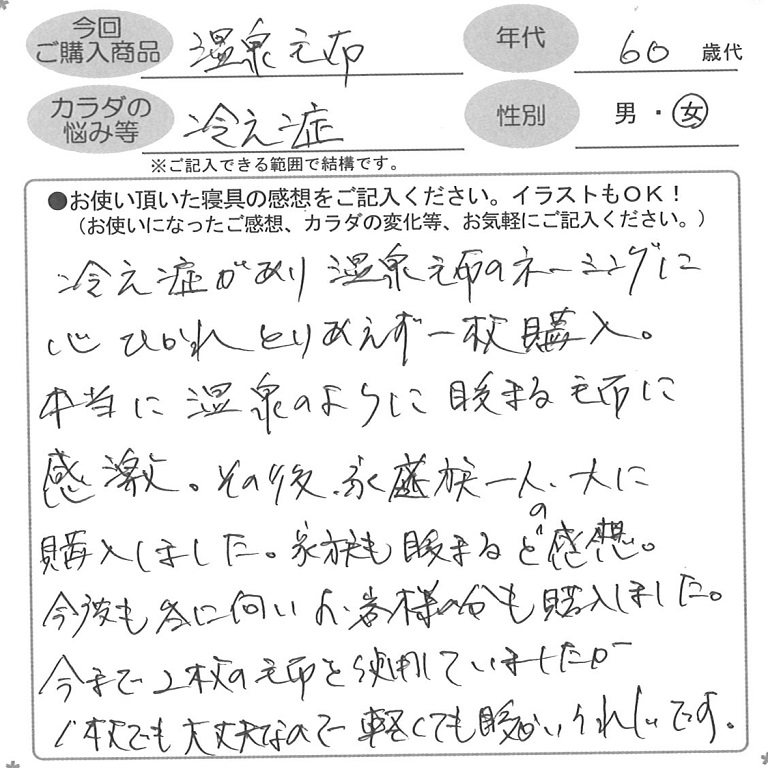 今回
ご購入商品 温泉毛布
年代 60 歳代
カラダの
悩み等 冷え症
性別 男・女
※ご記入できる範囲で結構です。
●お使い頂いた寝具の感想をご記入ください。イラストもOK！
（お使いになったご感想、カラダの変化等、お気軽にご記入ください。）
冷え症があり温泉毛布のネーミングに
心ひかれとりあえず一枚購入。
本当に温泉のように暖まる毛布に
感激。その後、家族一人、大に
購入しました。家族も暖まるとの感想。
今後も冬に向いお客様の分も購入しました。
今まで2枚の毛布を使用していましたが
1枚でも大丈夫なので軽くても暖かいうれしいです。